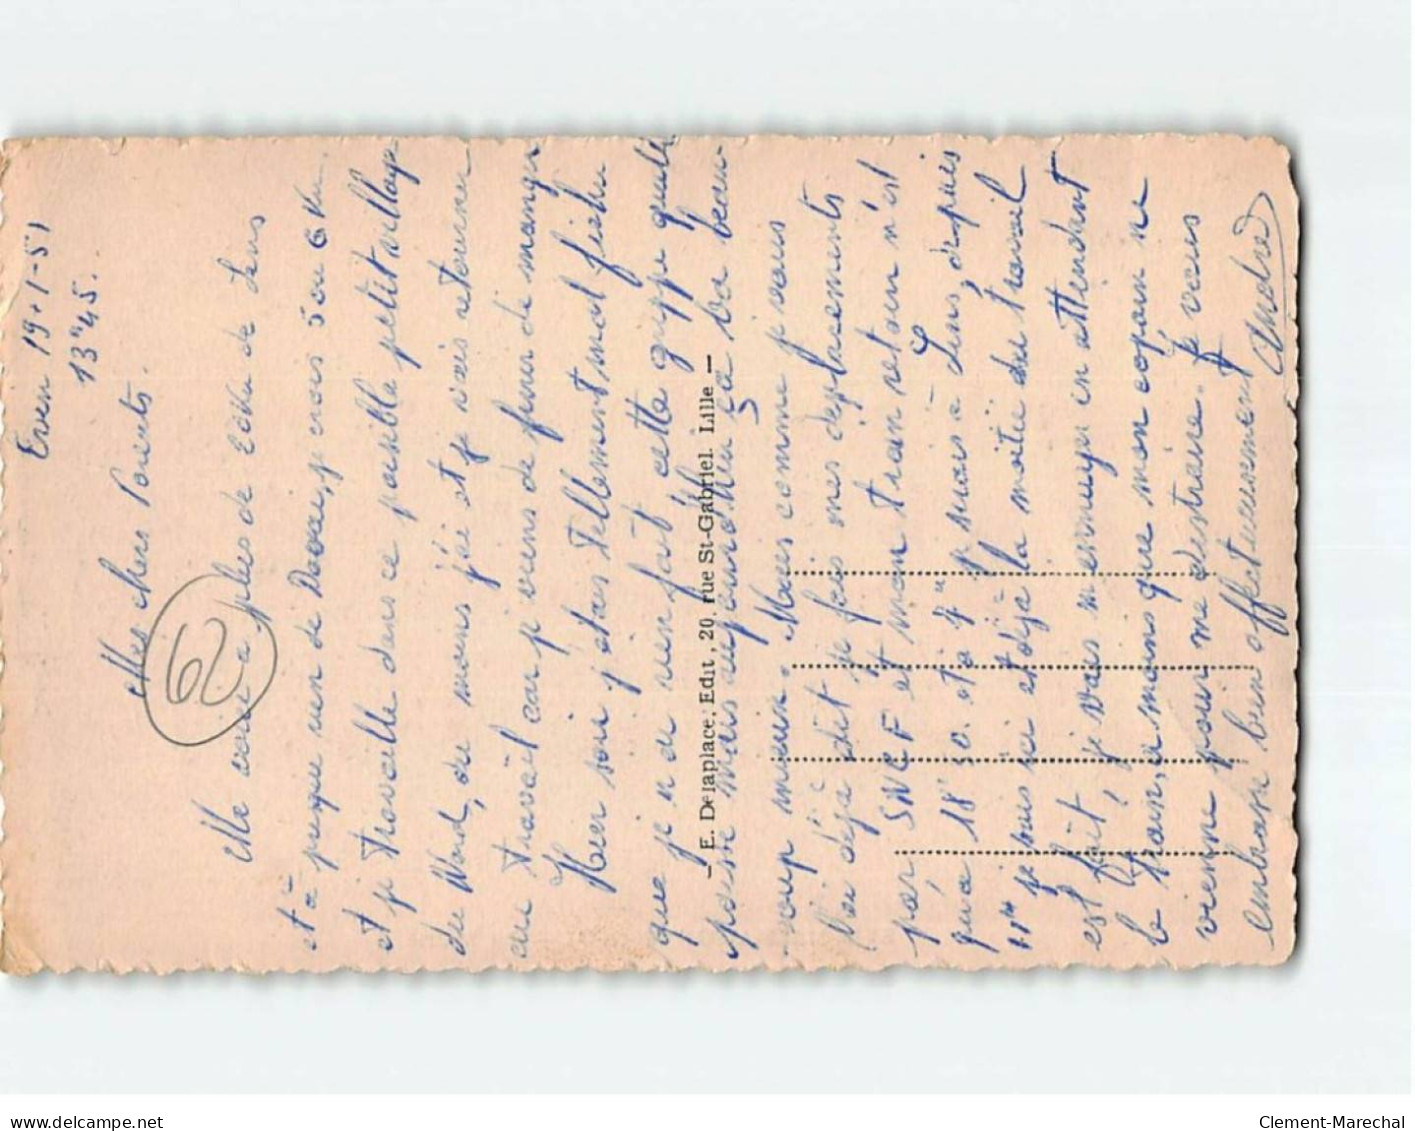 Evin 19-1-51
13h45.
Mes chers Parents.
Me voici à plus de 20km de Lens
et à presque un de Douai, je crois 5 ou 6 km
et je travaille dans ce paisible petit village
du Nord, du moins j'ai et je vais retourner
au travail car je viens de finir de manger
Hier soir j'étais tellement mal fichu
que je n'ai rien fait cette grippe quelle
poisse mais aujourd'hui ça va beau-
coup mieux. Mais comme je vous
l'ai déjà dit je fais mes déplacements
par SNCF et mon train retour n'est
qu'à 18h30. et à 7h j'étais à Lens, depuis
11h je suis ici et déjà la moitié du travail
est fait, je vais m'ennuyer en attendant
le train, à moins que mon copain ne
vienne pour me distraire. Je vous
embrasse bien affectueusement André
62
— E. Delaplace, Edit., 20, rue St-Gabriel. Lille —
delcampe.net
Clement-Marechal